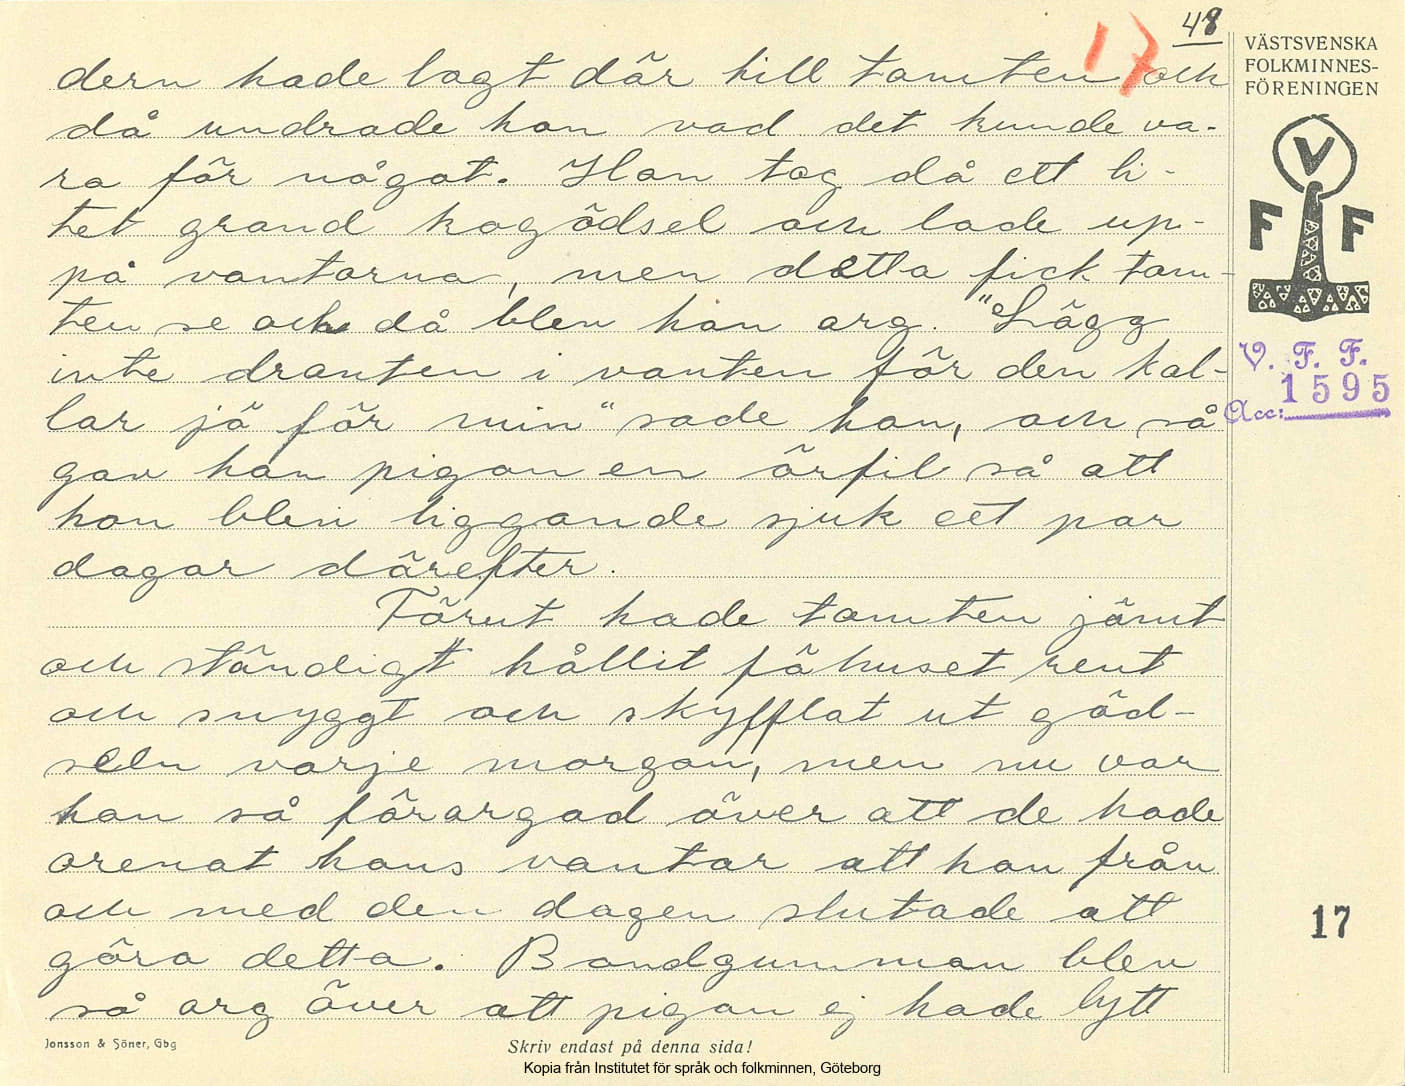 48
17
dern hade lagt där till tomten och
då undrade hon vad det kunde va-
ra för något. Hon tog då ett li-
tet grand kogödsel och lade up-
på vantarna, men detta fick tom-
ten se och då blev han arg. "Lägg
inte dranten i vanten för den kal-
lar jä för min" sade han, och så
gav han pigan en örfil så att
hon blev liggande sjuk ett par
dagar därefter.
Förut hade tomten jämt
och ständigt hållit fähuset rent
och snyggt och skyfflat ut göd-
seln varje morgon, men nu var
han så förargad över att de hade
orenat hans vantar att han från
och med den dagen slutade att
göra detta. Bondgumman blev
så arg över att pigan ej hade lytt
VÄSTSVENSKA
FOLKMINNES-
FÖRENINGEN
V
F F
V. F. F.
Acc: 1595
17
Jonsson & Söner, Gbg
Skriv endast på denna sida!
Kopia från Institutet för språk och folkminnen, Göteborg